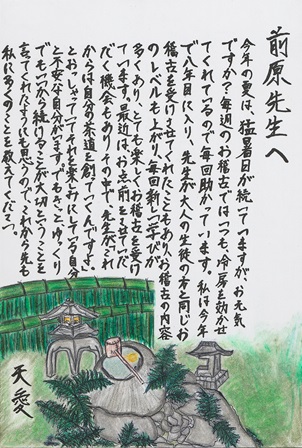 前原先生へ
今年の夏は、猛暑日が続いていますが、お元気
ですか？毎週のお稽古ではいつも、冷房を効かせ
てくれているので毎回助かっています。私は今年
で八年目に入り、先生が大人の生徒の方と同じお
稽古を受けさせてくれたこともあり、お稽古の内容
のレベルも上がり、毎回新しい学びが
多くあり、とても楽しくお稽古を受け
ています。最近はお点前をさせていた
だく機会もあり、その中で、先生がこれ
からは自分の茶道を創っていくんですよ。
とおっしゃっていてそれを楽しみにしている自分
と不安な自分がいます。でもきっと、ゆっくり
でもいつから続けることが大切ということを
言ってくれたようにも思うので、これから先も
私に多くのことを教えてください。
天愛